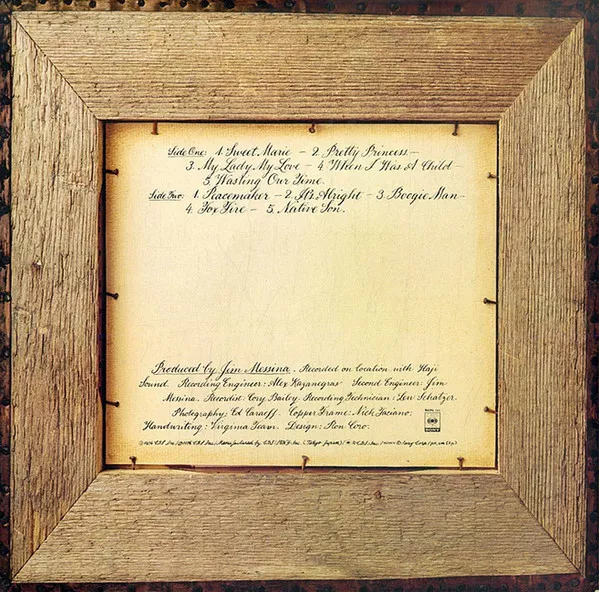 Side One: 1. Sweet Marie – 2. Pretty Princess –
3. My Lady, My Love – 4. When I Was A Child
5. Wasting Our Time.
Side Two: 1. Peacemaker – 2. It's Alright – 3. Boogie Man –
4. Fox Fire – 5. Native Son.
Produced by Jim Messina. Recorded on location with Haji
Sound. Recording Engineer: Alex Kazanegras Second Engineer: Jim
Messina. Recordist: Cory Bailey Recording Technician: Lew Schatzer.
Photography: Ed Caraeff. Copper Frame: Nick Fasciano.
Handwriting: Virginia Team. Design: Ron Coro.
SONY